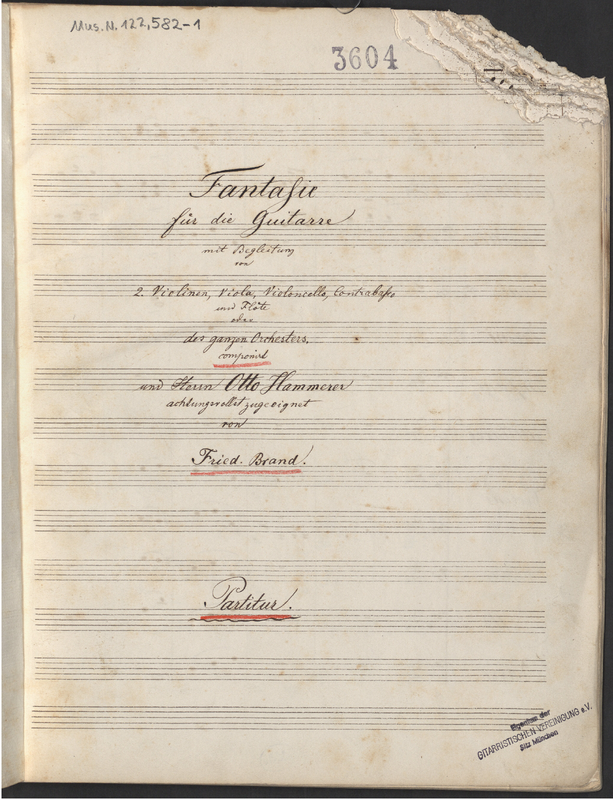 Mus.N. 122,582-1
3604
Fantasie
für die Guitarre
mit Begleitung
von
2. Violinen, Viola, Violoncello, Contrabaßo
und Flöte
oder
des ganzen Orchesters,
componirt
und Herrn Otto Hammerer
achtungsvollst zugeeignet
von
Fried. Brand.
Partitur.
Eigentum der
GITARRISTISCHEN VEREINIGUNG e.V.
Sitz München